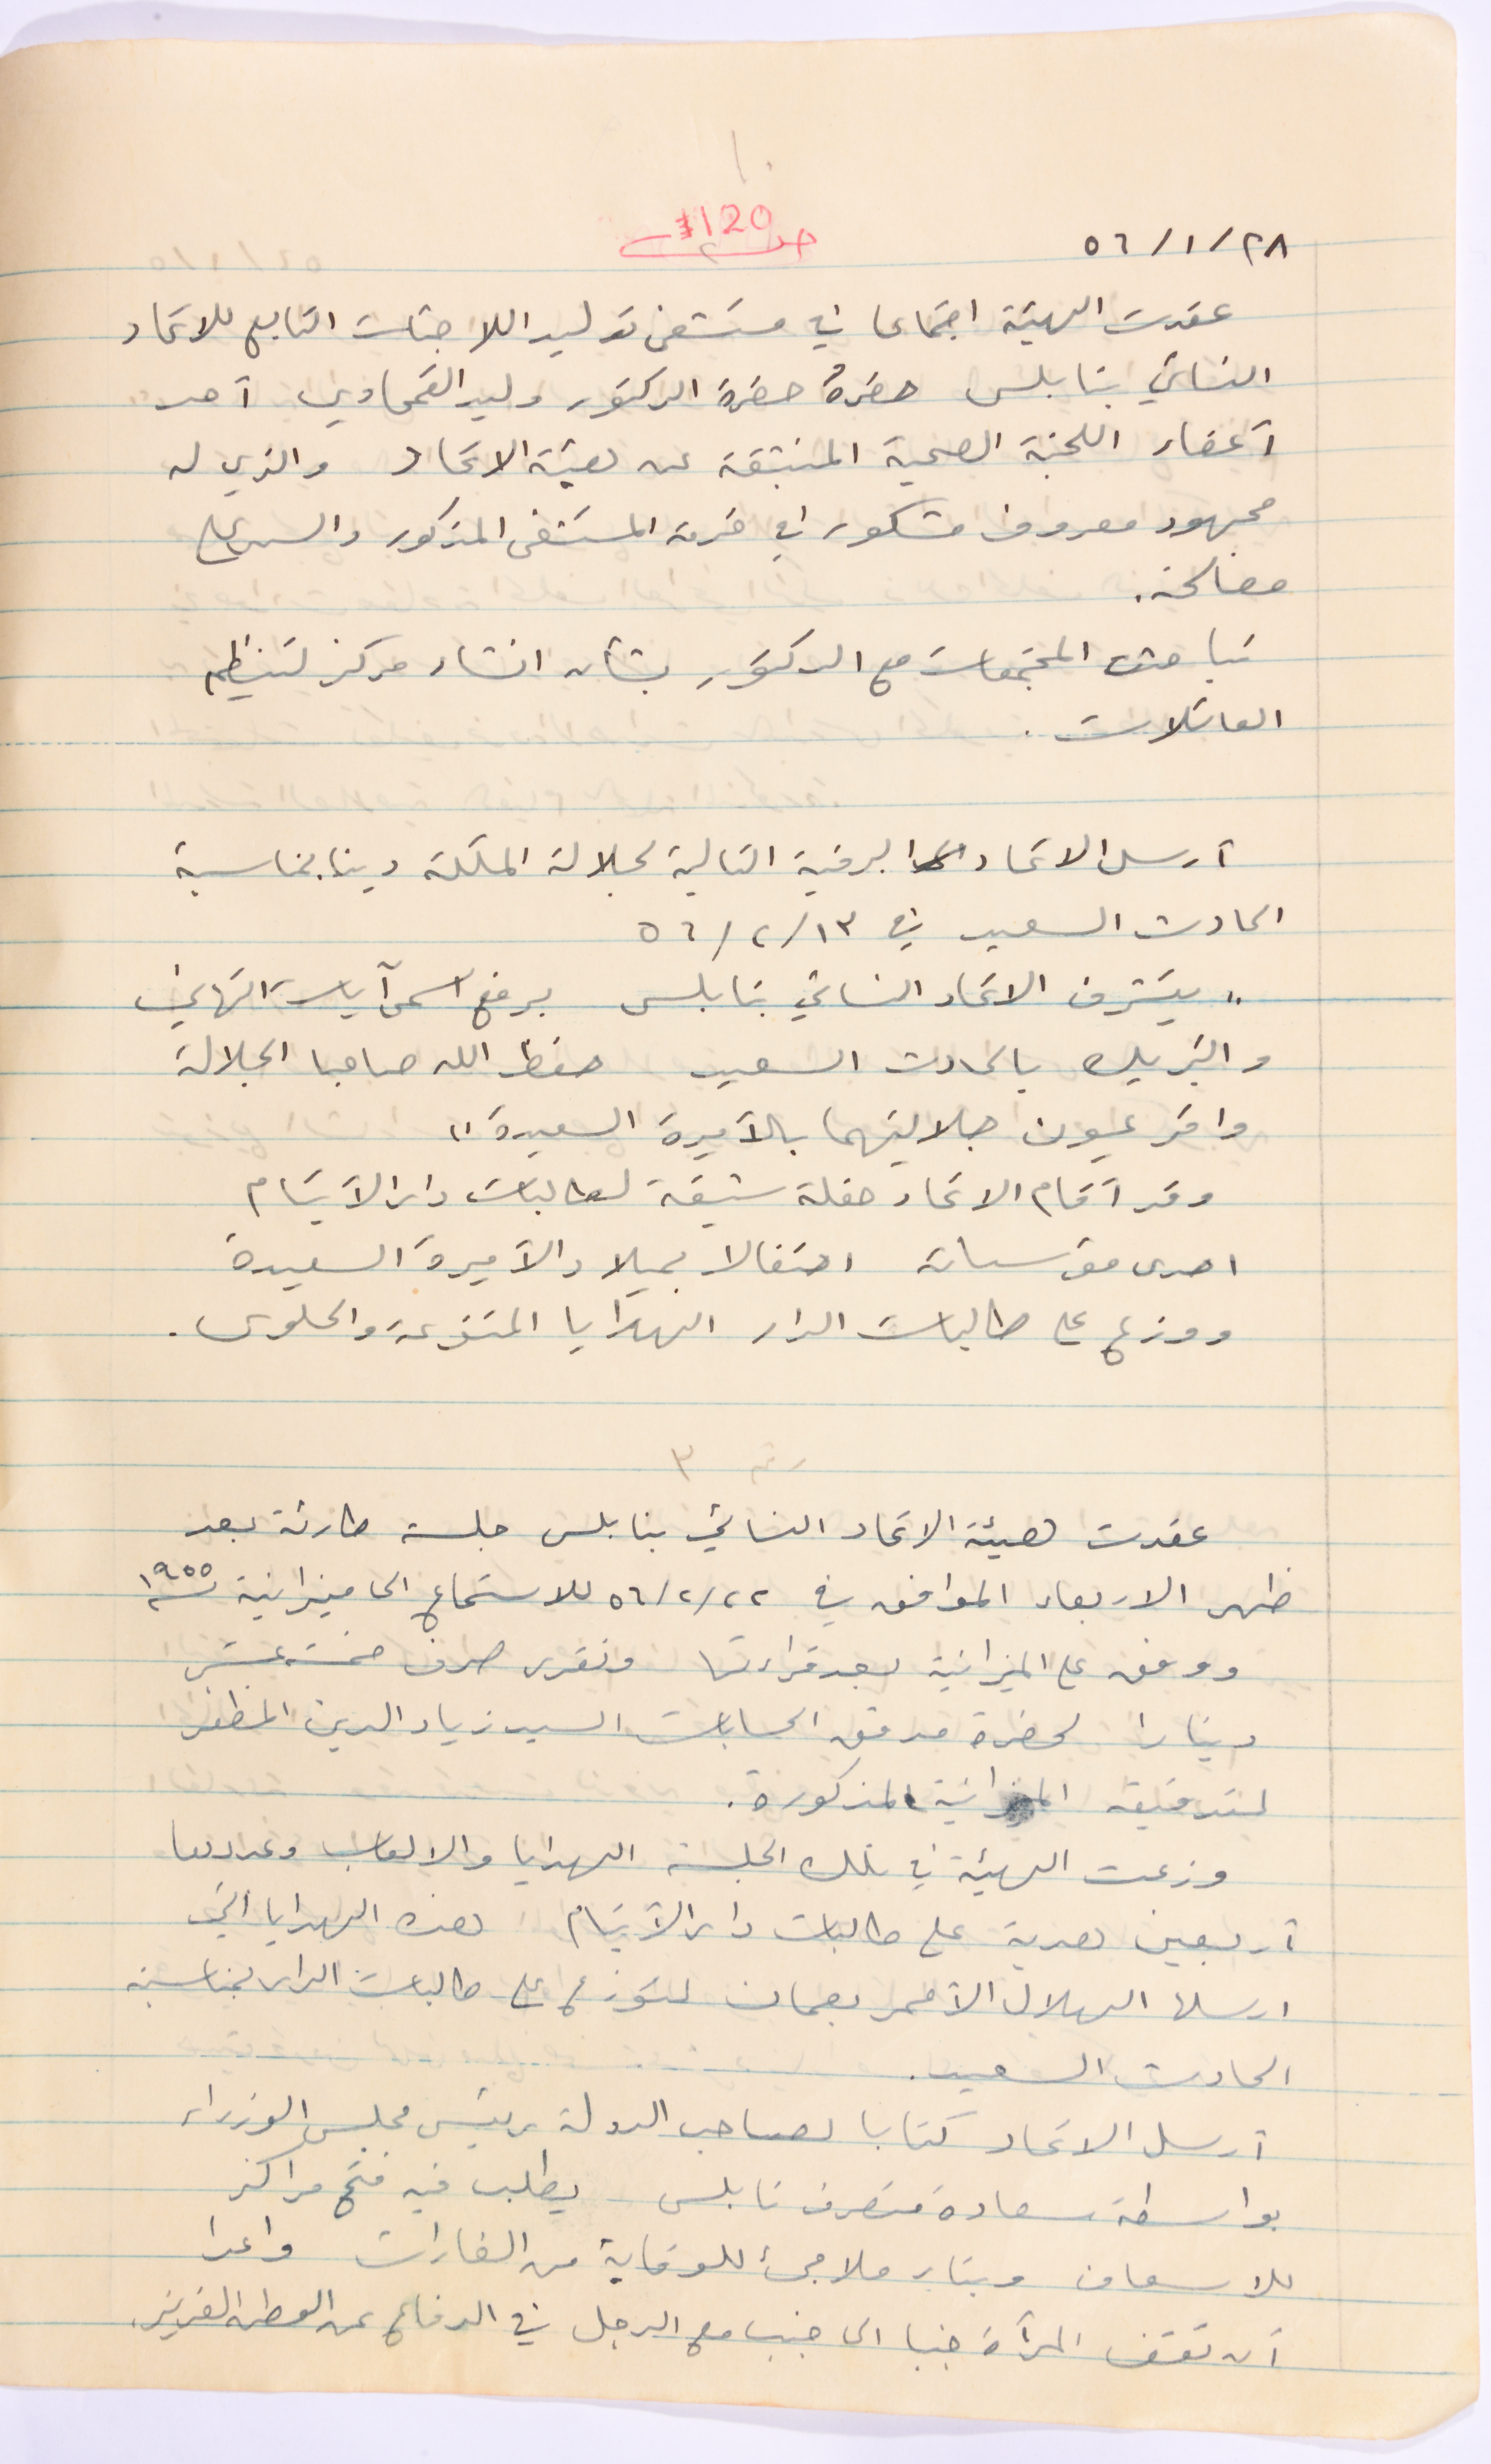 ١٠
120
٥٦/١/٢٨
عقدت الهيئة اجتماعا في مستشفى توليد اللاجئات التابع للاتحاد
النسائي بنابلس حضرهُ حضرة الدكتور وليد القمحاوي أحد
أعضاء اللجنة الصحية المنبثقة عن هيئة الاتحاد والذي له
مجهود معروف مشكور في خدمة المستشفى المذكور والسهر على
مصالحه.
تباحثت المجتمعات مع الدكتور بشأن انشاء مركز لتنظيم
العائلات.
أرسل الاتحاد البرقية التالية لجلالة الملكة دينا بمناسبة
الحادث السعيد في ٥٦/٢/١٣
" يتشرف الاتحاد النسائي بنابلس برفع اسمى آيات التهاني
والتبريك بالحادث السعيد حفظ الله صاحبا الجلالة
واقر عيون جلاليتهما بالأميرة السعيدة "
وقد أقام الاتحاد حفلة شيقة لطالبات دار الأيتام
احدى مؤسساته احتفالا بميلاد الأميرة السعيدة
ووزع على طالبات الدار الهدايا المتنوعة والحلوى.
رقم ٣
عقدت هيئة الاتحاد النسائي بنابلس جلسة طارئة بعد
ظهر الاربعاء الموافق في ٥٦/٢/٢٢ للاستماع الى ميزانية سنة ١٩٥٥
ووفق على الميزانية بعد قراءتها وتقرر صرف خمسة عشر
دينارا لحضرة مدقق الحسابات السيد زياد الدين المظفر
لتدقيقه الميزانية المذكورة.
وزعت الهيئة في تلك الجلسة الهدايا والالعاب وعددها
أربعين هدية على طالبات دار الأيتام هذه الهدايا التي
ارسلها الهلال الأحمر بعمان لتوزع على طالبات الدار بمناسبة
الحادث السعيد.
أرسل الاتحاد كتابا لصاحب الدولة رئيس مجلس الوزراء
بواسطة سعادة متصرف نابلس يطلب فيه فتح مراكز
للاسعاف وبناء ملاجئ للوقاية من الغارات واعدا
أن تقف المرأة جنبا الى جنب مع الرجل في الدفاع عن الوطن العزيز.